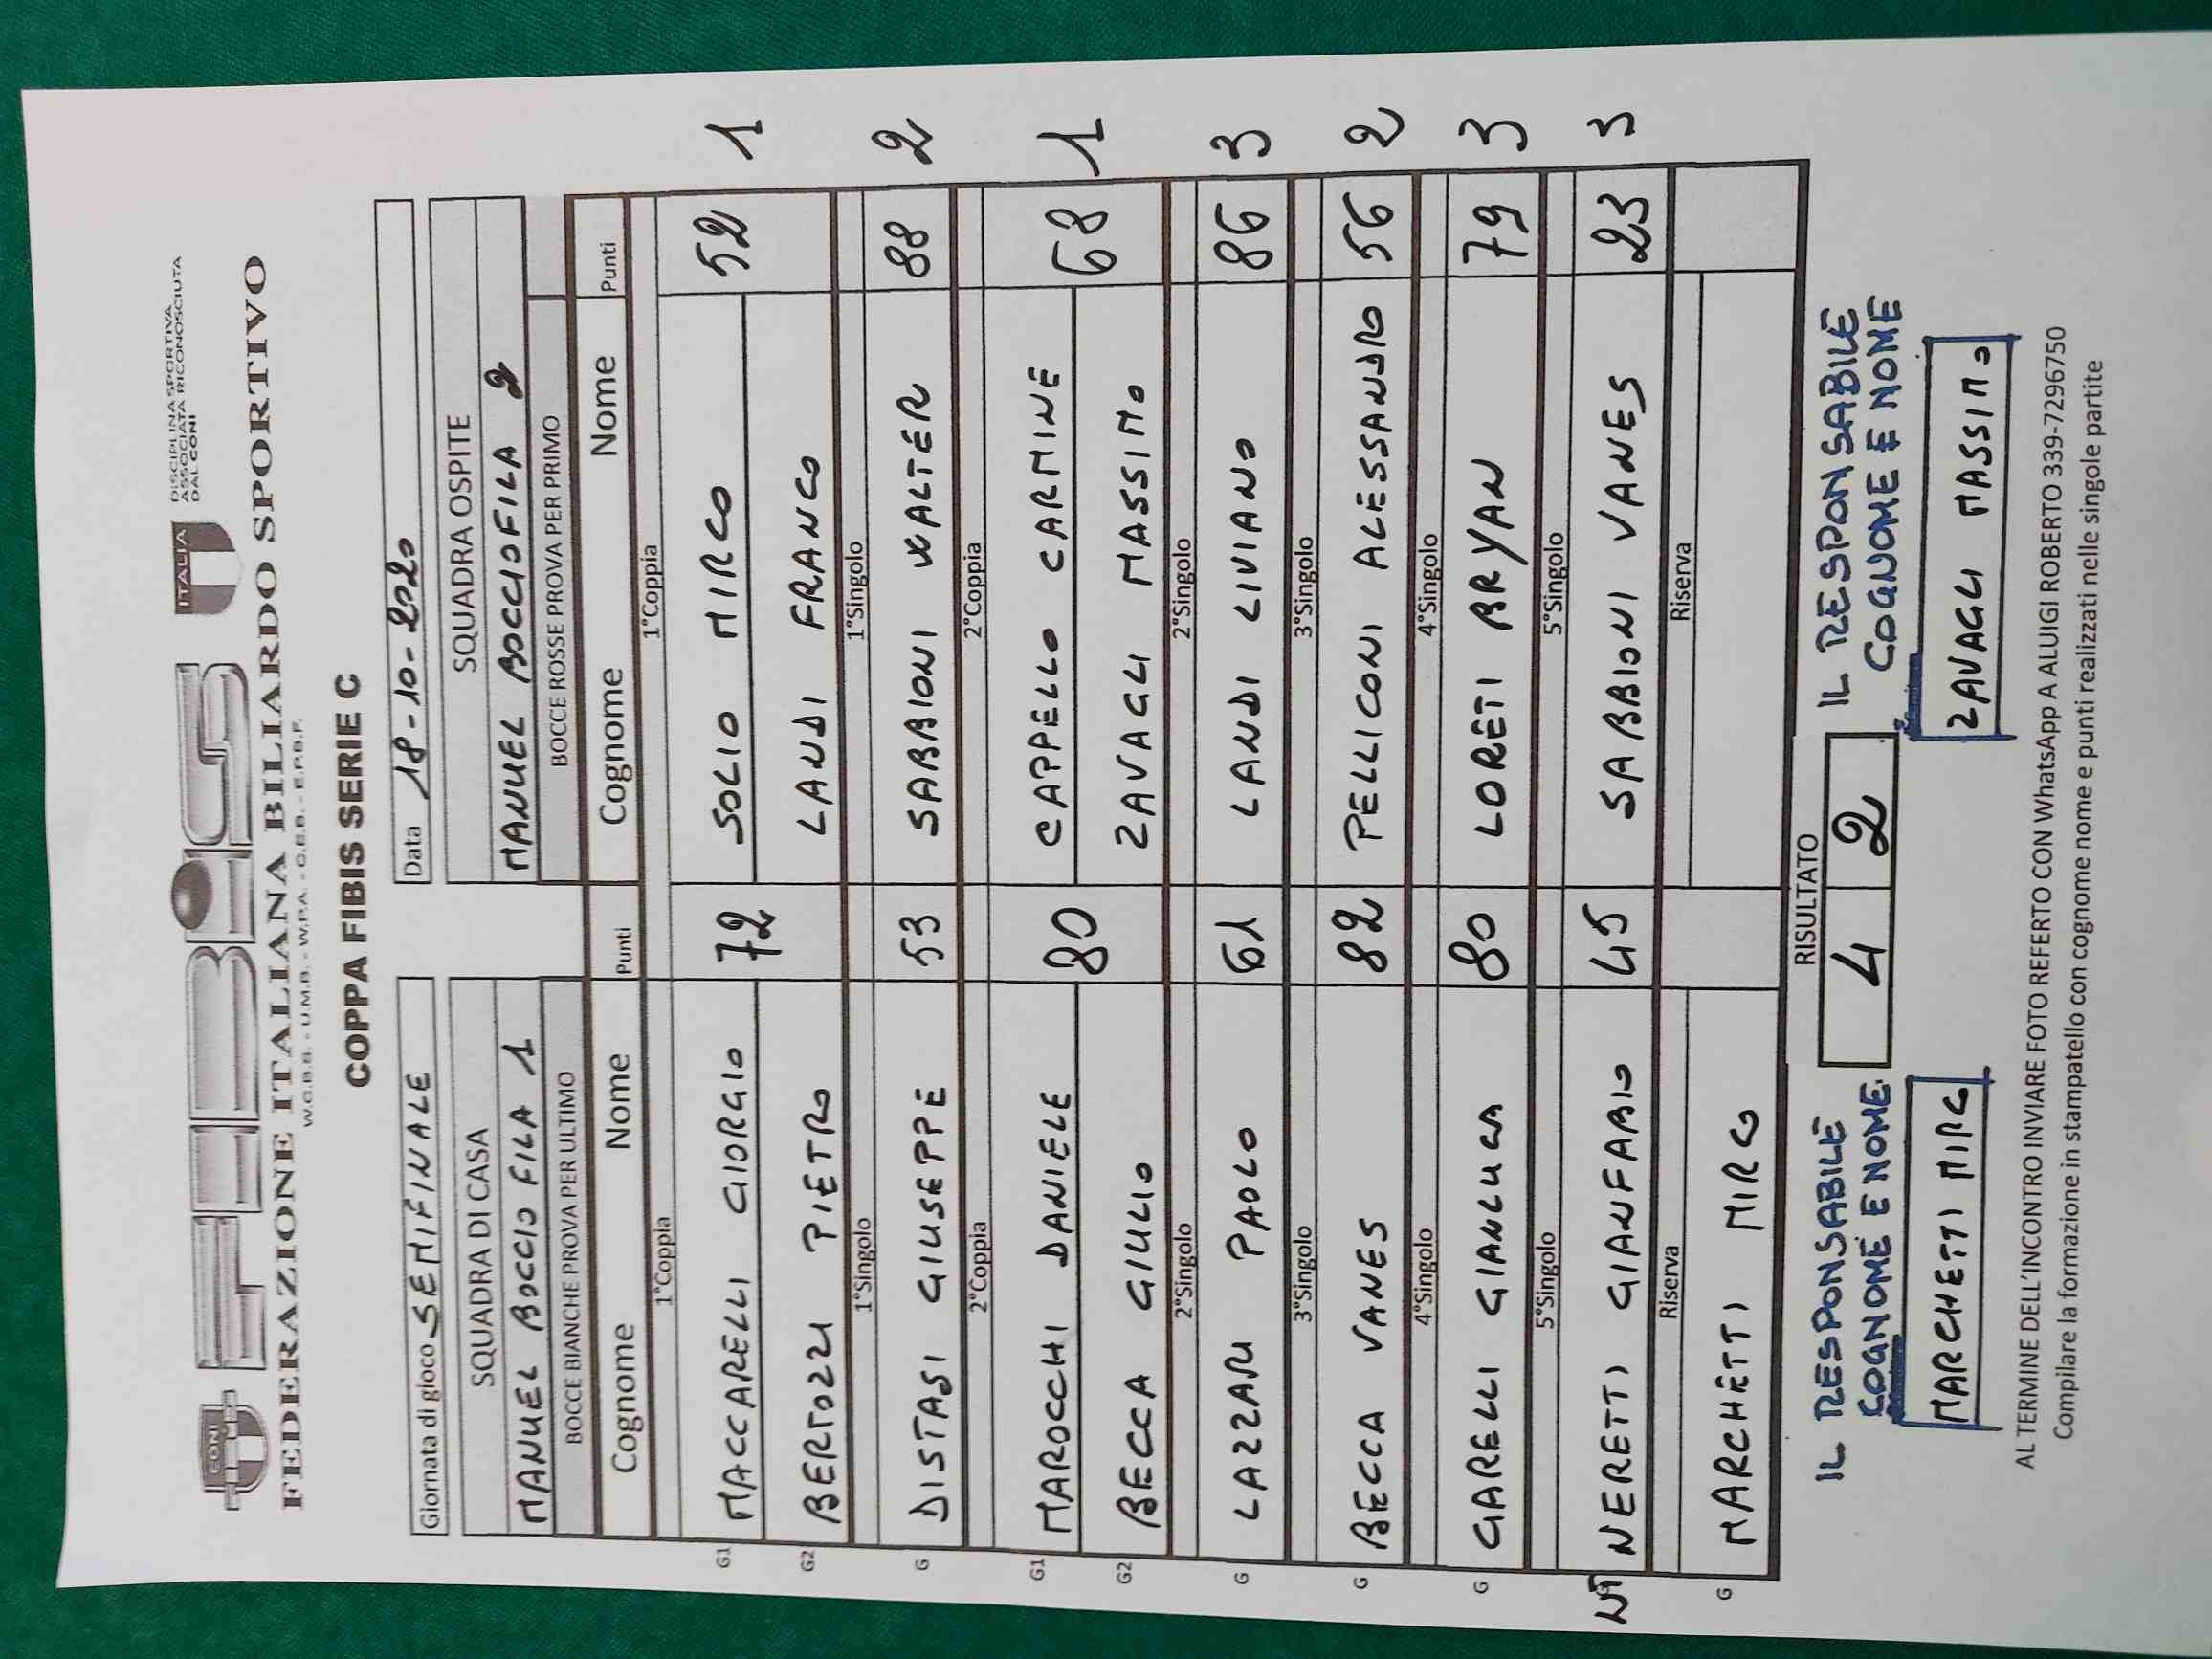 CONI
FEBIS
ITALIA
DISCIPLINA SPORTIVA
ASSOCIATA RICONOSCIUTA
DAL CONI
FEDERAZIONE ITALIANA BILIARDO SPORTIVO
W.C.B.S. - U.M.B. - W.P.A. - C.E.B. - E.P.B.F.
COPPA FIBIS SERIE C
Giornata di gioco SEMIFINALE Data 18-10-2020
SQUADRA DI CASA SQUADRA OSPITE
MANUEL BOCCIOFILA 1 MANUEL BOCCIOFILA 2
BOCCE BIANCHE PROVA PER ULTIMO BOCCE ROSSE PROVA PER PRIMO
Cognome Nome Punti Cognome Nome Punti
1°Coppia 1°Coppia
G1 MACCARELLI GIORGIO 72 SOLIO MIRCO 52 1
G2 BERTOZZI PIETRO LANDI FRANCO
1°Singolo 1°Singolo
G DISTASI GIUSEPPE 53 SABBIONI WALTER 88 2
2°Coppia 2°Coppia
G1 MAROCCHI DANIELE 80 CAPPELLO CARMINE 68 1
G2 BECCA GIULIO ZAVAGLI MASSIMO
2°Singolo 2°Singolo
G LAZZARI PAOLO 61 LANDI LIVIANO 86 3
3°Singolo 3°Singolo
G BECCA VANES 82 PELLICONI ALESSANDRO 56 2
4°Singolo 4°Singolo
G GARELLI GIANLUCA 80 LORETI BRYAN 79 3
5°Singolo 5°Singolo
NERETTI GIANFABIO 45 SABBIONI VANES 23 3
Riserva Riserva
G MARCHETTI MIRCO
RISULTATO
IL RESPONSABILE 4 2 IL RESPONSABILE
COGNOME E NOME COGNOME E NOME
MARCHETTI MIRCO ZAVAGLI MASSIMO
AL TERMINE DELL'INCONTRO INVIARE FOTO REFERTO CON WhatsApp A ALUIGI ROBERTO 339-7296750
Compilare la formazione in stampatello con cognome nome e punti realizzati nelle singole partite